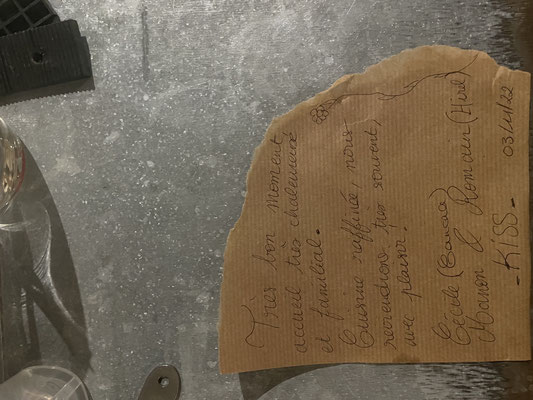 Très bon moment,
accueil très chaleureux
et familial.
Cuisine raffinée, nous
reviendrons très souvent,
avec plaisir.
Cécile
Manon & Romain (Hird)
- KISS -
03/11/22